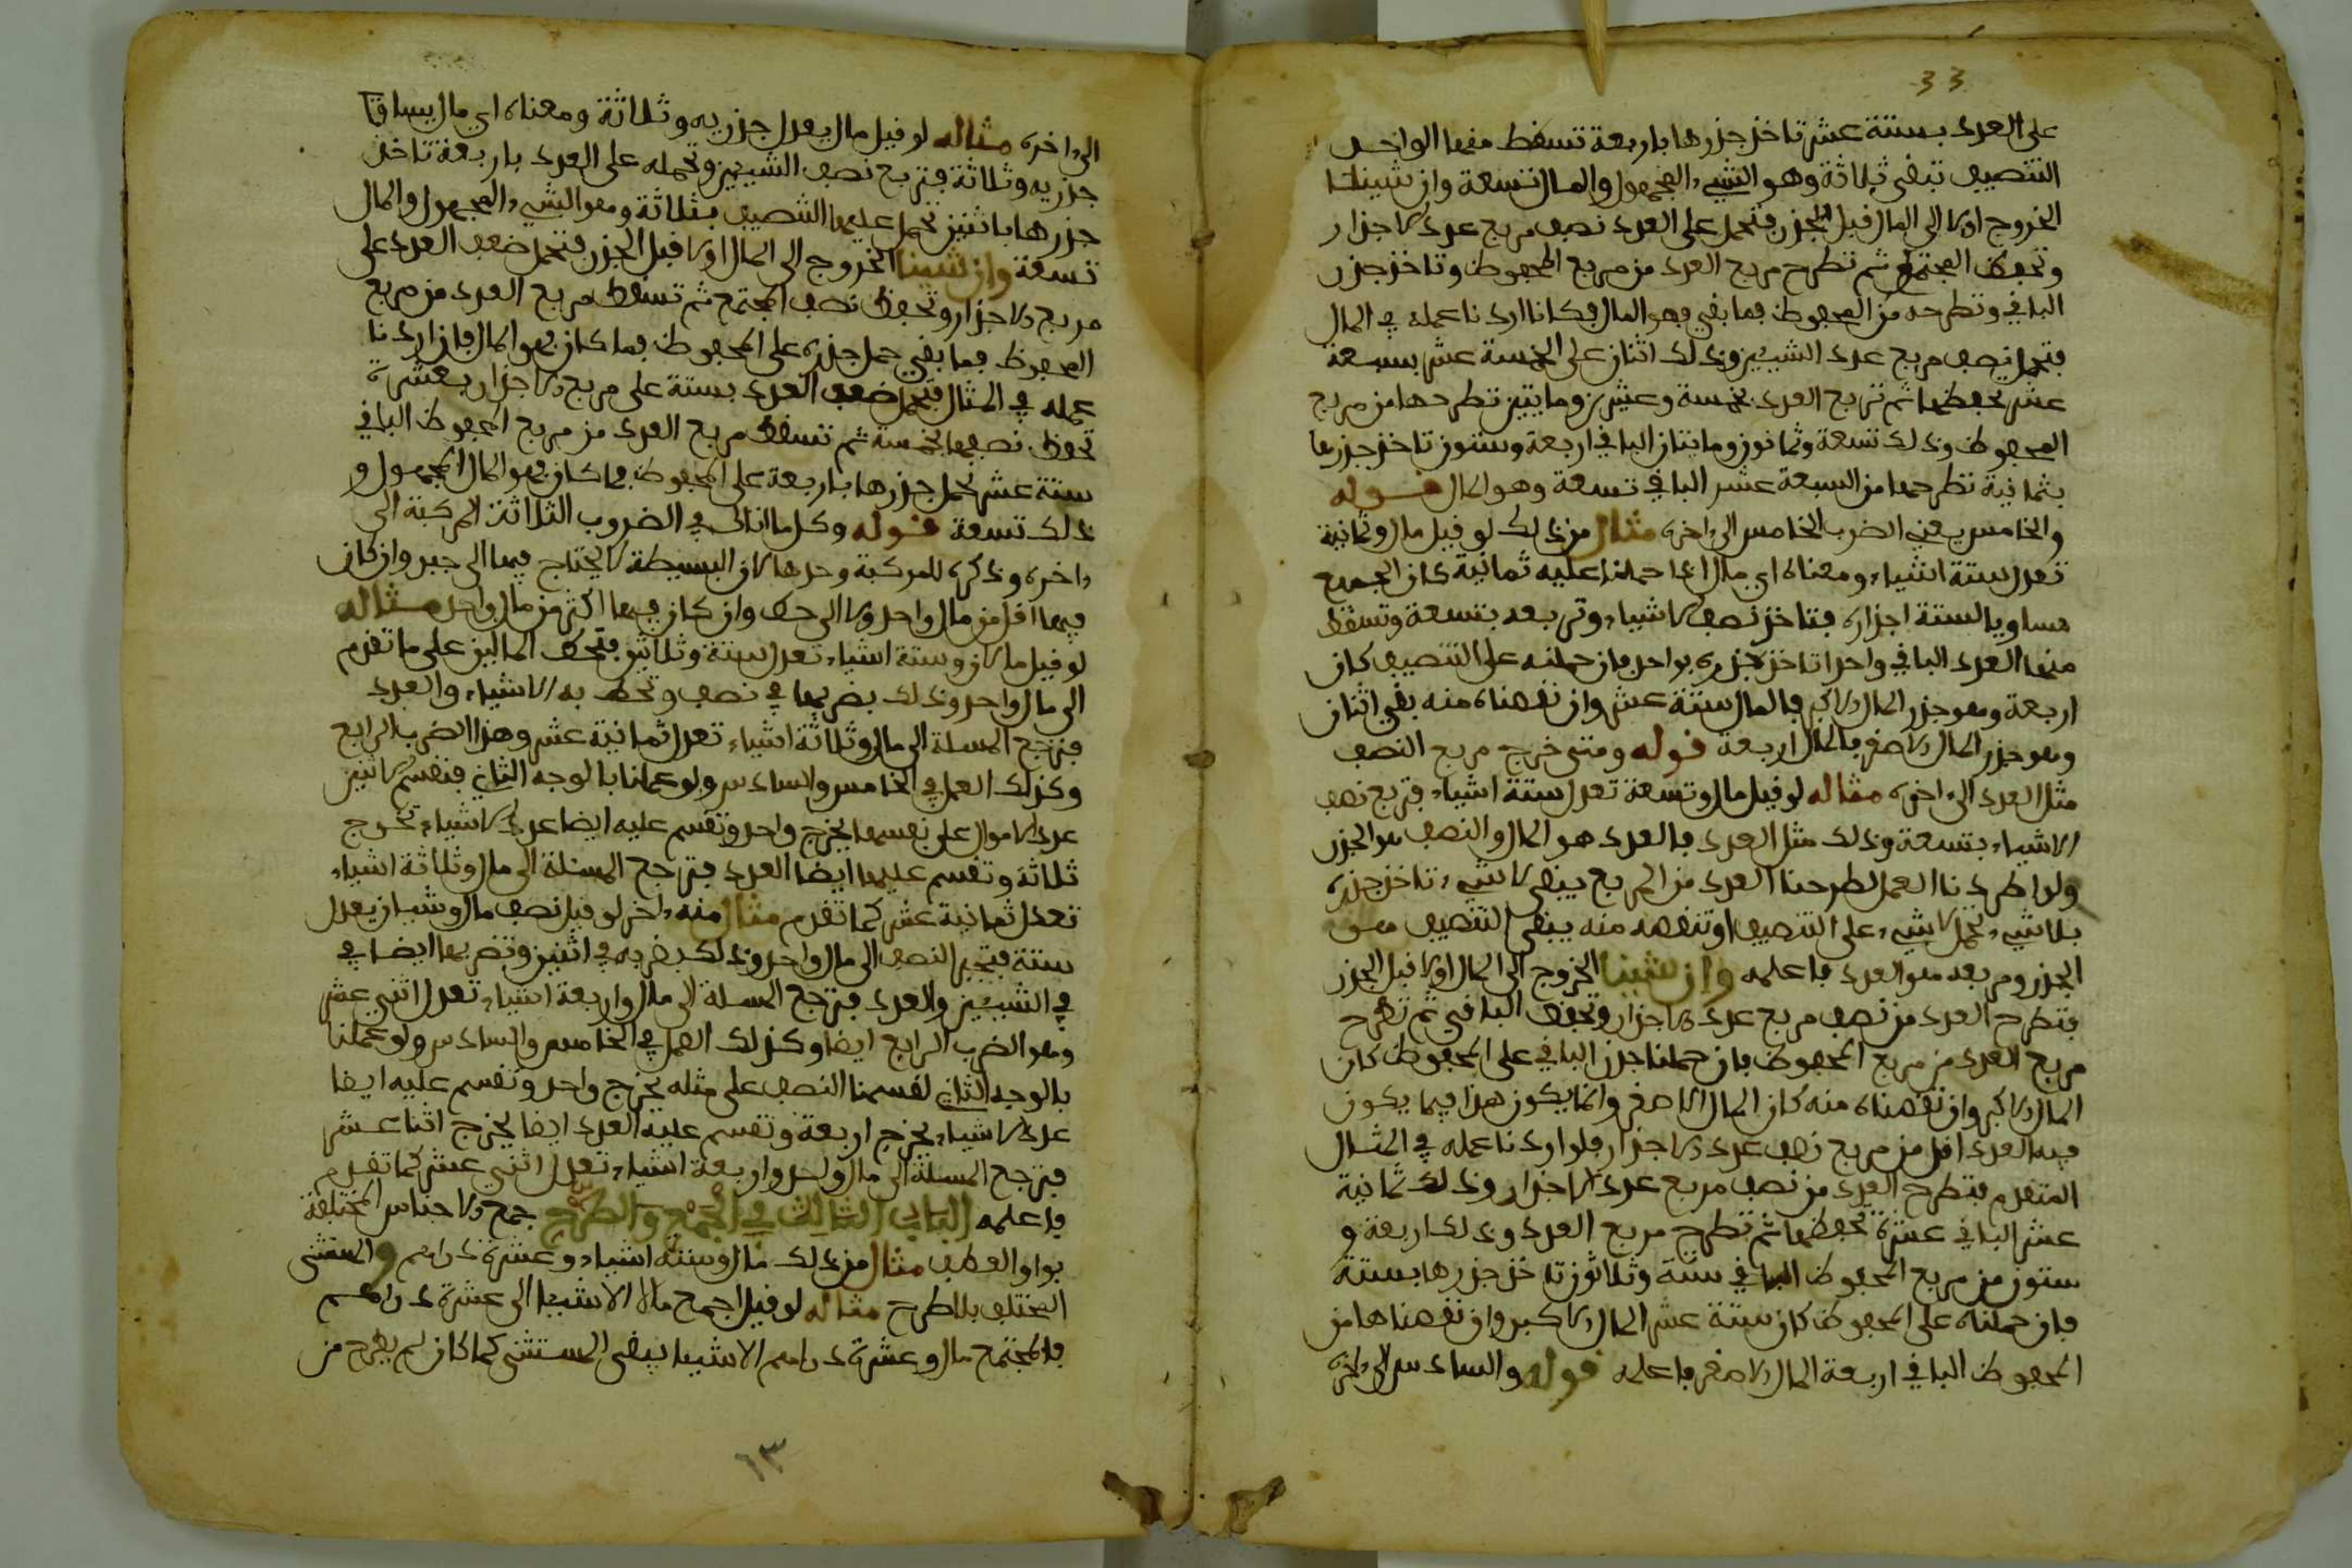 33
على العدد بستة عشر تاخذ جذرها باربعة تسقط منها الواحد
التنصيف تبقى ثلاثة وهو الشيء المجهول والمال تسعة وان شينا
الخروج اولا الى المال قبل الجذر فتحمل على العدد نصف مربع عدد الاجذار
وتحفظ المجتمع ثم تطرح مربع العدد من مربع المحفوظ وتاخذ جذر
الباقي وتطرحه من المحفوظ فما بقي فهو المال فكانا اردنا عمله في المال
فتحمل نصف مربع عدد الشييين وذلك اثنان على الخمسة عشر بسبعة
عشر تحفظها ثم تربع العدد بخمسة وعشرين ومايتين تطرحها من مربع
المحفوظ وذلك تسعة وثمانون ومايتان الباقي اربعة وستون تاخذ جذرها
بثمانية تطرحها من السبعة عشر الباقي تسعة وهو المال قوله
والخامس يعني الضرب الخامس الى اخره مثال من ذلك لو قيل مال وثمانية
تعدل ستة اشياء ومعناه اي مال اذا حملنا عليه ثمانية كان الجميع
مساويا لستة اجذاره فتاخذ نصف الاشياء وتربعه بتسعة وتسقط
منها العدد الباقي واحدا تاخذ جذره بواحد فان حملته على التنصيف كان
اربعة وهو جذر المال الاكبر فالمال ستة عشر وان نقصناه منه بقي اثنان
وهو جذر المال الاصغر فالمال اربعة قوله ومتى خرج مربع النصف
مثل العدد الى اخره مثاله لو قيل مال وتسعة تعدل ستة اشياء فتربع نصف
الاشياء بتسعة وذلك مثل العدد فالعدد هو المال والنصف هو الجذر
ولو اطردنا العمل لطرحنا العدد من المربع يبقى لا شيء تاخذ جذره
بلا شيء تحمل لا شيء على التنصيف او تنقصه منه يبقى التنصيف هو
الجذر ومربعه هو العدد فاعلمه وان شينا الخروج الى المال اولا قبل الجذر
فتطرح العدد من نصف مربع عدد الاجذار وتحفظ الباقي ثم تطرح
مربع العدد من مربع المحفوظ فان حملنا جذر الباقي على المحفوظ كان
المال الاكبر وان نقصناه منه كان المال الاصغر وانما يكون هذا فيما يكون
فيه العدد اقل من مربع نصف عدد الاجذار فلو اردنا عمله في المثال
المتقدم فتطرح العدد من نصف مربع عدد الاجذار وذلك ثمانية
عشر الباقي عشرة تحفظها ثم تطرح مربع العدد وذلك اربعة و
ستون من مربع المحفوظ الباقي ستة وثلاثون تاخذ جذرها بستة
فان حملناه على المحفوظ كان ستة عشر المال الاكبر وان نقصناها من
المحفوظ الباقي اربعة المال الاصغر فاعلمه قوله والسادس الى اخره
الى اخره مثاله لو قيل مال يعدل جذريه وثلاثة ومعناه اي مال يساوي
جذريه وثلاثة فتربع نصف الشييين وتحمله على العدد باربعة تاخذ
جذرها باثنين تحمل عليها التنصيف بثلاثة وهو الشيء المجهول والمال
تسعة وان شينا الخروج الى المال اولا قبل الجذر فتحمل ضعف العدد على
مربع الاجذار وتحفظ نصف المجتمع ثم تسقط مربع العدد من مربع
المحفوظ فما بقي حمل جذره على المحفوظ فما كان فهو المال فان اردنا
عمله في المثال فتحمل ضعف العدد بستة على مربع الاجذار بعشرة
تحفظ نصفها بخمسة ثم تسقط مربع العدد من مربع المحفوظ الباقي
ستة عشر تحمل جذرها باربعة على المحفوظ فما كان فهو المال المجهول و
ذلك تسعة قوله وكل ما اتاك في الضروب الثلاثة المركبة الى
اخره وذكره للمركبة وحدها لان البسيطة لا يحتاج فيها الى جبر وان كان
فيها اقل من مال واحد ولا الى حط وان كان فيها اكثر من مال واحد مثاله
لو قيل مالان وستة اشياء تعدل ستة وثلاثين فتحط المالين على ما تقدم
الى مال واحد وذلك بضربهما في نصف وتحط به الاشياء والعدد
فترجع المسلة الى مال وثلاثة اشياء تعدل ثمانية عشر وهذا الضرب الرابع
وكذلك العمل في الخامس والسادس ولو عملنا بالوجه الثاني فنقسم الاثنين
عدد الاموال على نفسها يخرج واحد وتقسم عليه ايضا عدد الاشياء تخرج
ثلاثة وتقسم عليها ايضا العدد فترجع المسئلة الى مال وثلاثة اشياء
تعدل ثمانية عشر كما تقدم مثال منه اخر لو قيل نصف مال وشيان يعدل
ستة فتجبر النصف الى مال واحد وذلك بضربه في اثنين وتضربها ايضا في
في الشييين والعدد فترجع المسلة الى مال واربعة اشياء تعدل اثني عشر
وهو الضرب الرابع ايضا وكذلك العمل في الخامس والسادس ولو عملنا
بالوجه الثاني لقسمنا النصف على مثله يخرج واحد ونقسم عليه ايضا
عدد الاشياء يخرج اربعة وتقسم عليه العدد ايضا يخرج اثنا عشر
فترجع المسئلة الى مال واحد واربعة اشياء تعدل اثني عشر كما تقدم
فاعلمه الباب الثالث في الجمع والطرح جمع الاجناس المختلفة
بواو العطف مثال من ذلك مال وستة اشياء وعشرة دراهم والمستثنى
المختلف بالطرح مثاله لو قيل اجمع مالا الا شيا الى عشرة دراهم
فالمجتمع مال وعشرة دراهم الا شيا يبقى المستثنى كما كان لم يطرح من
١٣